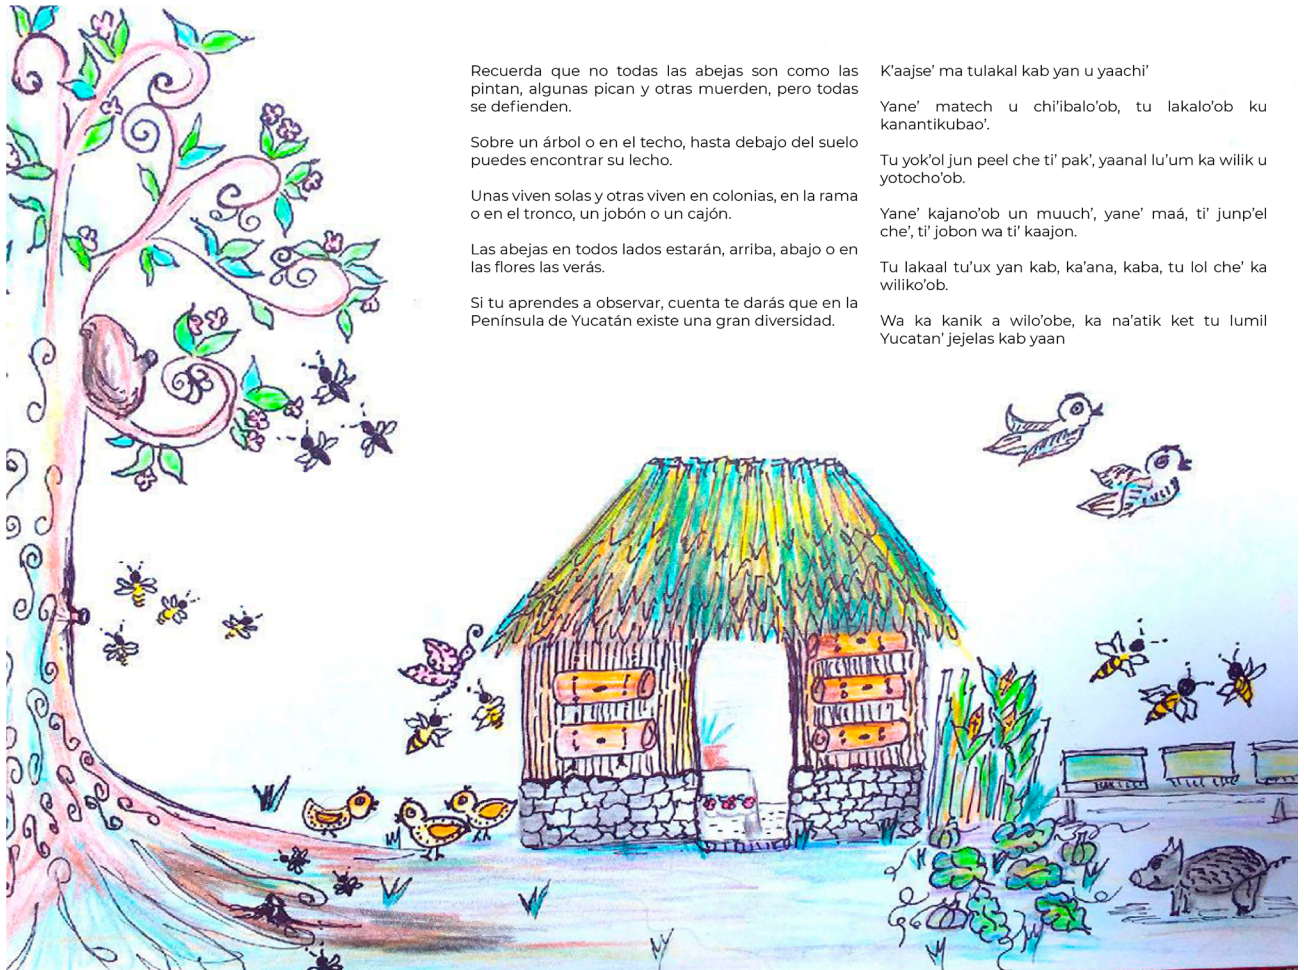 Recuerda que no todas las abejas son como las
pintan, algunas pican y otras muerden, pero todas
se defienden.
Sobre un árbol o en el techo, hasta debajo del suelo
puedes encontrar su lecho.
Unas viven solas y otras viven en colonias, en la rama
o en el tronco, un jobón o un cajón.
Las abejas en todos lados estarán, arriba, abajo o en
las flores las verás.
Si tu aprendes a observar, cuenta te darás que en la
Península de Yucatán existe una gran diversidad.
K'aajse' ma tulakal kab yan u yaachi'
Yane' matech u chi'ibalo'ob, tu lakalo'ob ku
kanantikubao'.
Tu yok'ol jun peel che ti' pak', yaanal lu'um ka wilik u
yotocho'ob.
Yane' kajano'ob un muuch', yane' maá, ti' junp'el
che', ti' jobon wa ti' kaajon.
Tu lakaal tu'ux yan kab, ka'ana, kaba, tu lol che' ka
wiliko'ob.
Wa ka kanik a wilo'obe, ka na'atik ket tu lumil
Yucatan' jejelas kab yaan